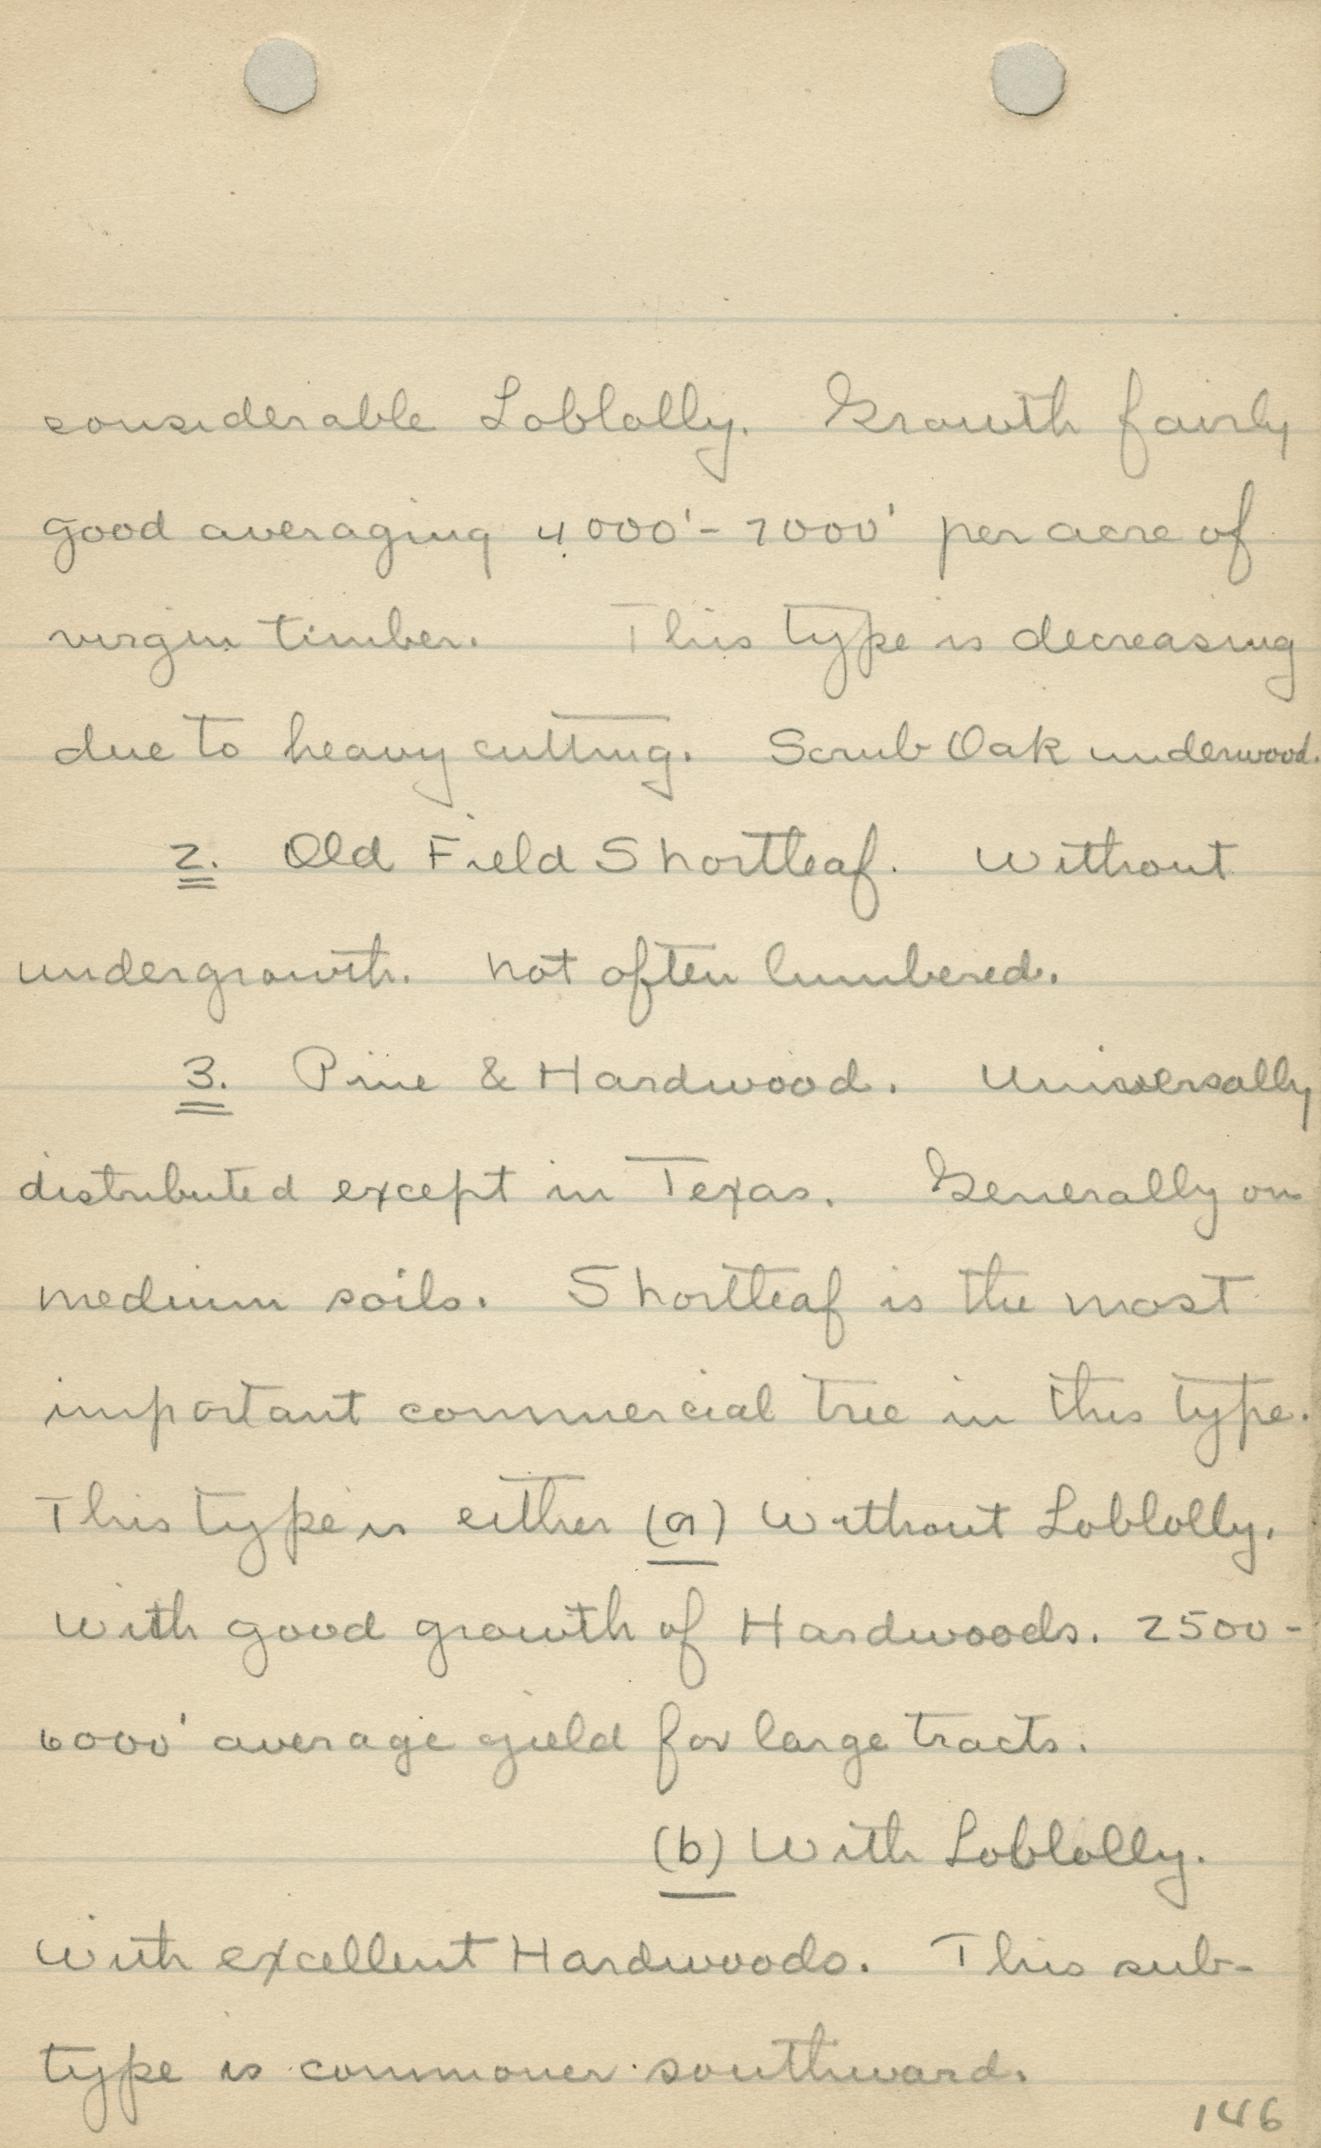 considerable Loblolly. Growth fairly
good averaging 4000'- 7000' per acre of
virgin timber. This type is decreasing
due to heavy cutting. Scrub Oak underwood.
2. Old Field Shortleaf. Without
undergrowth. Not often lumbered.
3. Pine & Hardwood. Universally
distributed except in Texas. Generally on
medium soils. Shortleaf is the most
important commercial tree in this type.
This type is either (a) Without Loblolly.
With good growth of Hardwoods. 2500-
6000' average yield for large tracts.
(b) With Loblolly.
With excellent Hardwoods. This sub-
type is commoner southward.
146